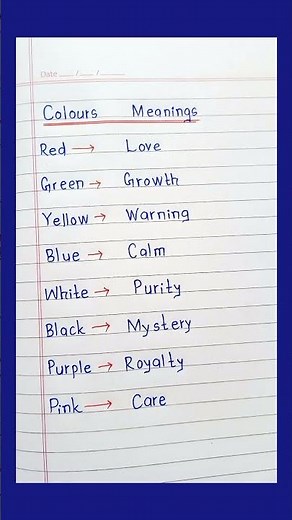 Date ___/___/______
Colours Meanings
Red → Love
Green → Growth
Yellow → Warning
Blue → Calm
White → Purity
Black → Mystery
Purple → Royalty
Pink → Care